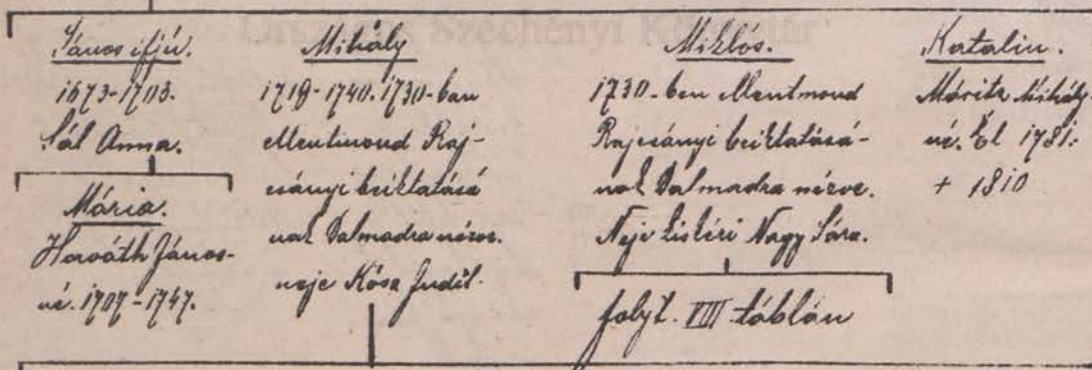 Országos Széchényi Könyvtár
János ifjú.
1673-1703.
Sál Anna.
Mária.
Horváth János-
né. 1707-1747.
Mihály
1719-1740. 1730-ban
ellentmond Raj-
csányi beiktatásá
nak Dalmadra nézve.
neje Kósa Judit.
Miklós.
1730-ben ellentmond
Rajcsányi beiktatásá-
nak Dalmadra nézve.
Neje Kiskéri Nagy Sára.
folyt. VIII táblán
Katalin.
Móritz Mihály
né. Él 1781.
+ 1810